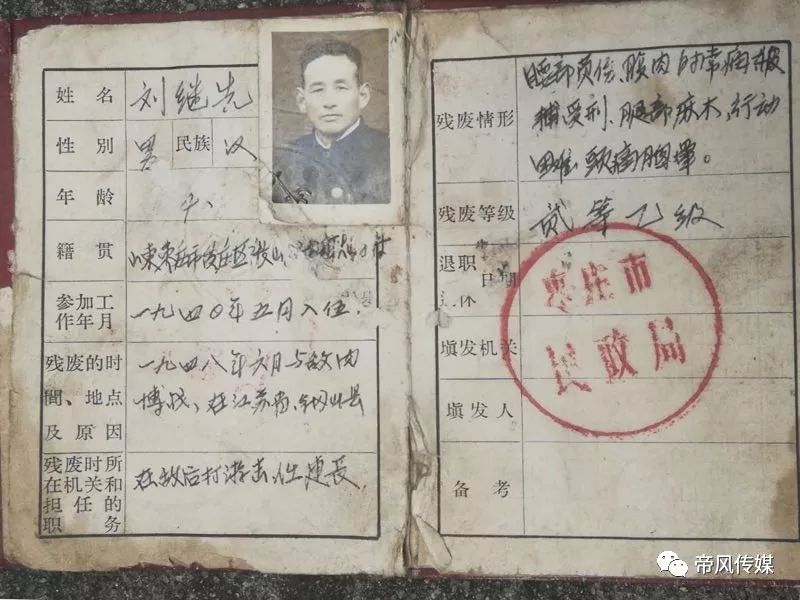 姓名 刘继先
性别 男 民族 汉
年龄
籍贯 山东枣庄市
参加工作年月 一九四〇年五月入伍.
残废的时间、地点及原因
一九四八年六月与敌肉
博战、在江苏省、铜山县
残废时所在机关和担任的职务
在敌后打游击、任连长,
残废情形
腰部负伤、腹肉时常痛被
捕受刑、腿部麻木、行动
困难 头痛胸
残废等级 贰等乙级
退职
日期
休
填发机关
枣庄市
民政局
填发人
备考
帝风传媒